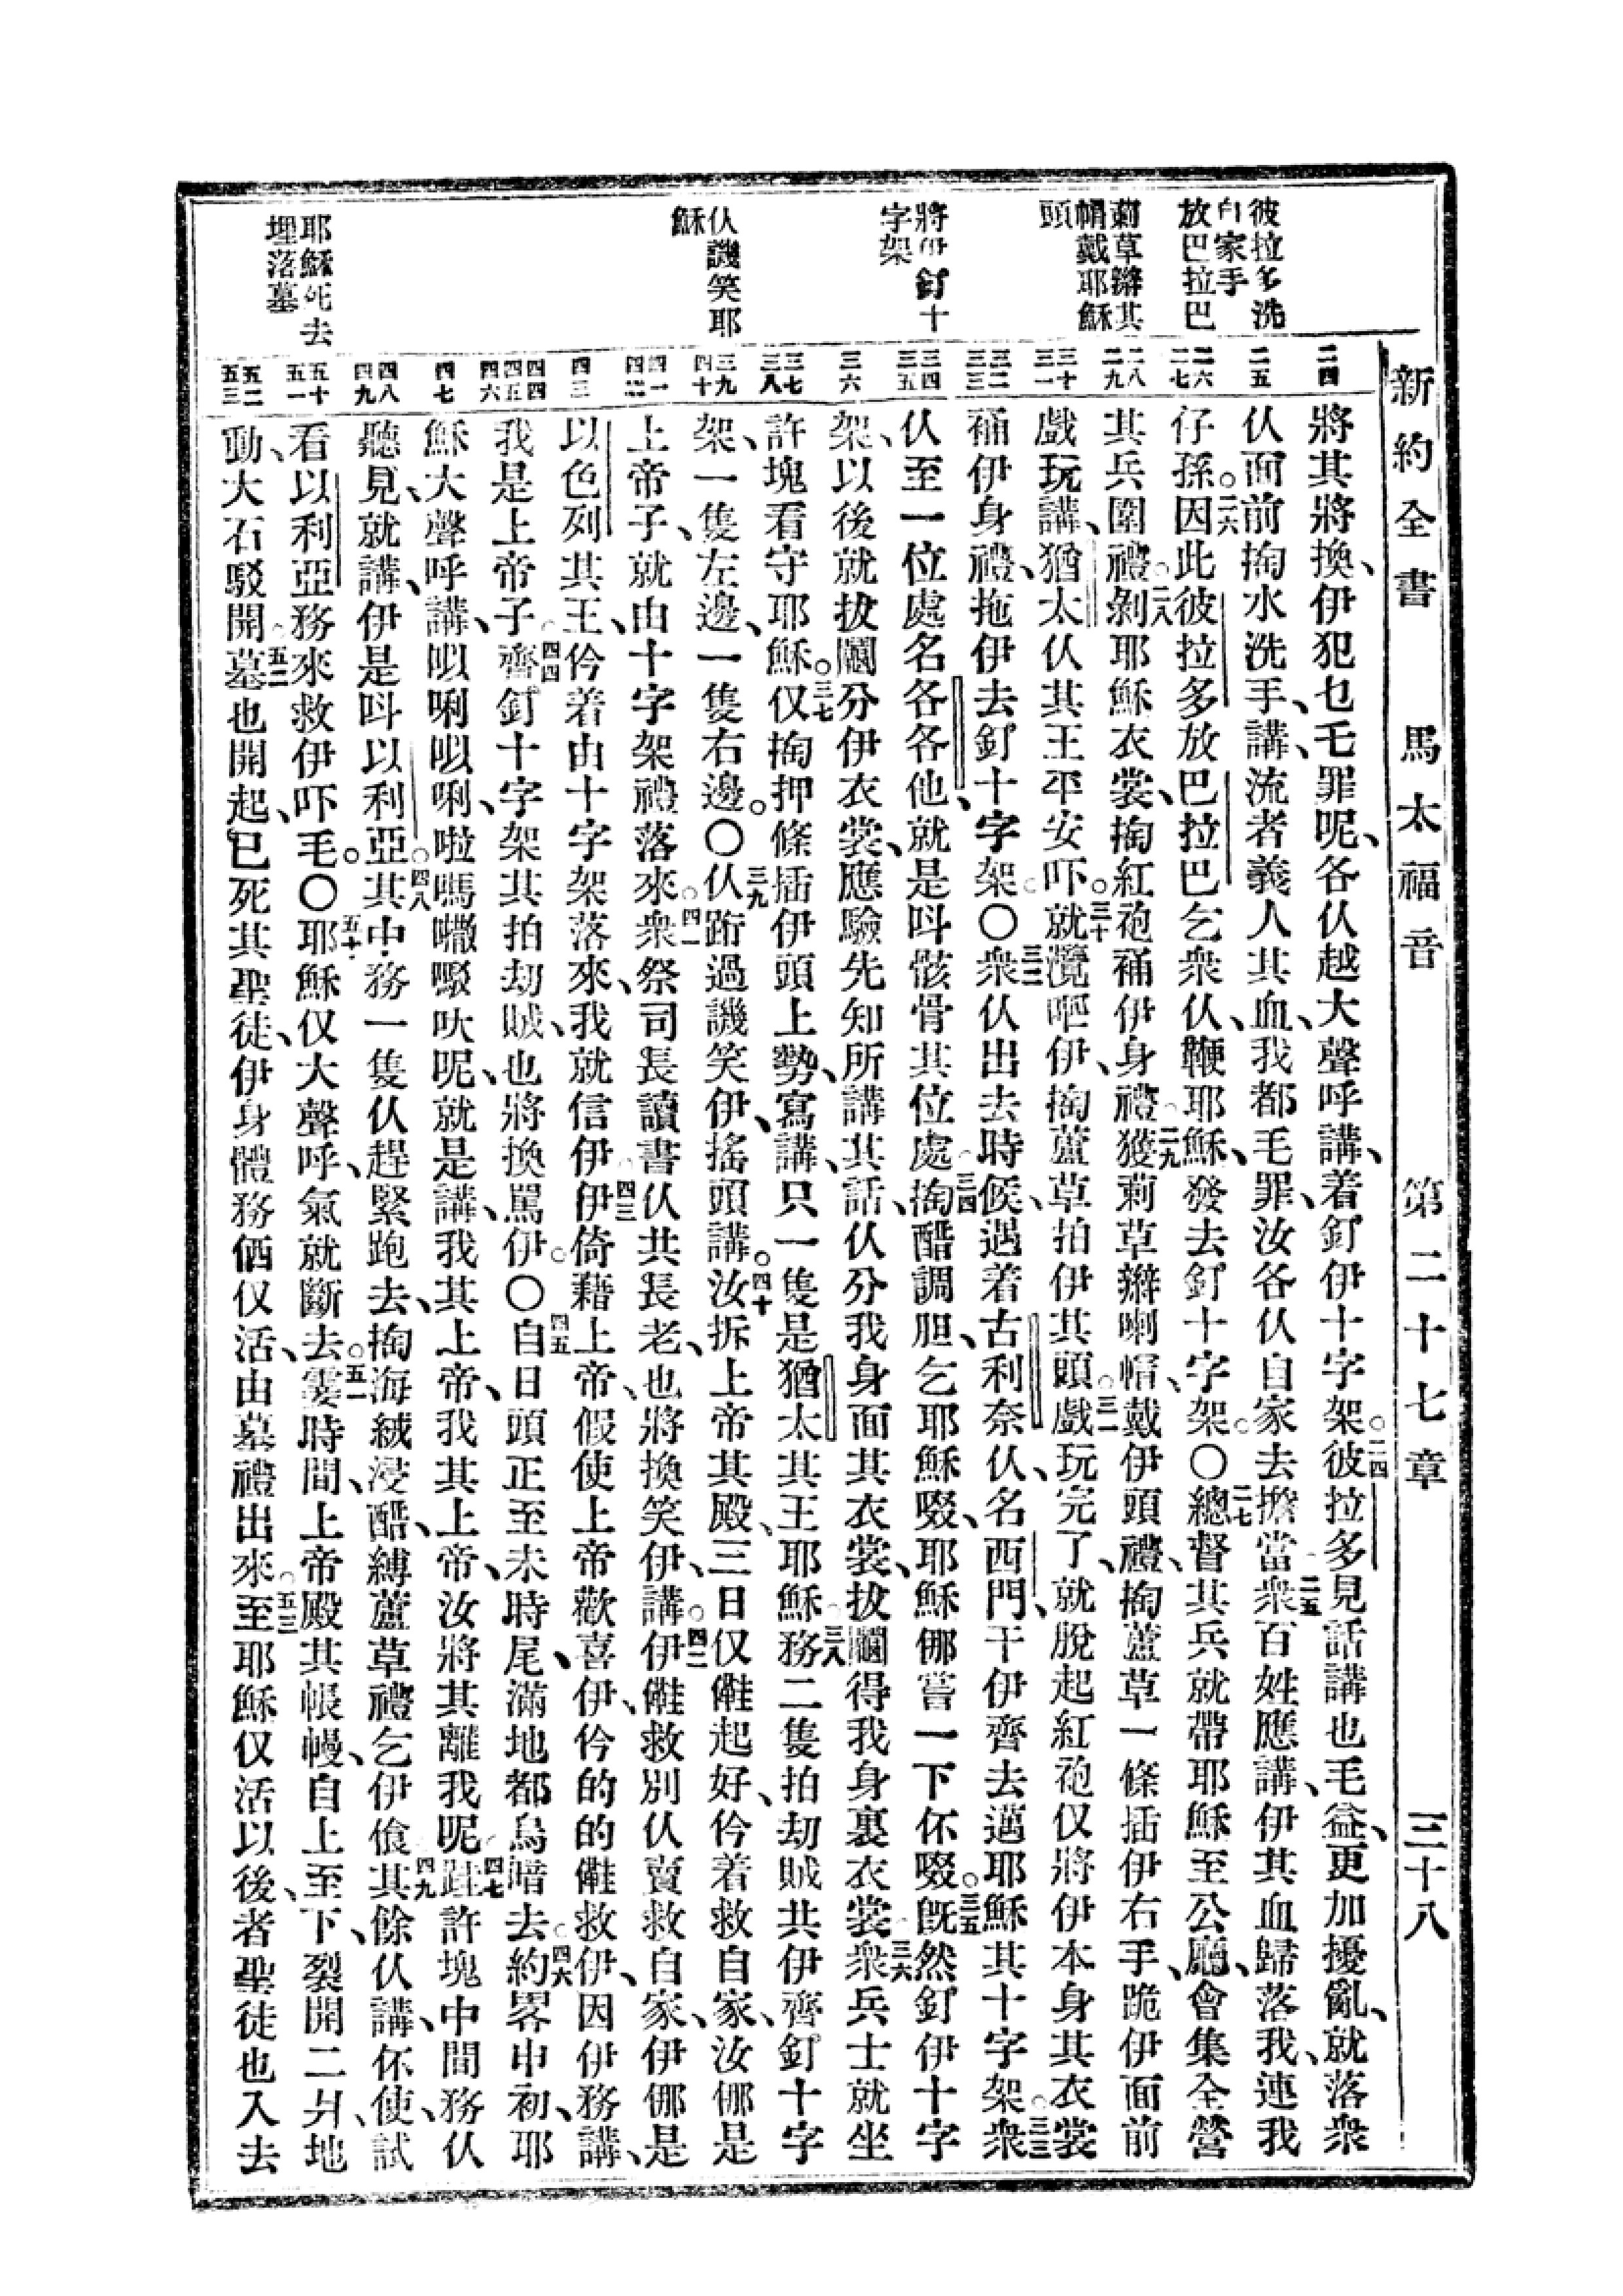 新約全書　馬太福音　第二十七章　三十八
彼拉多洗
自家手
放巴拉巴
莿草辮其
帽戴耶穌
頭
將伊釘十
字架
仈譏笑耶
穌
耶穌死去
埋落墓
二四
二五
二六 二七
二八 二九
三十 三一
三二 三三
三四 三五
三六
三七 三八
三九 四十
四一 四二
四三
四四 四五 四六
四七
四八 四九
五十 五一
五二 五三
將其將換、伊犯乜毛罪呢、各仈越大聲呼講、着釘伊十字架。二四彼拉多見話講也毛益、更加擾亂、就落衆
仈面前掏水洗手、講、流者義人其血、我都毛罪、汝各仈自家去擔當。二五衆百姓應講、伊其血歸落我、連我
仔孫。二六因此彼拉多放巴拉巴乞衆仈、鞭耶穌、發去釘十字架。〇二七總督其兵就帶耶穌至公廳、會集全營
其兵圍禮。二八剝耶穌衣裳、掏紅袍裲伊身禮。二九獲莿草辮喇帽、戴伊頭禮、掏蘆草一條插伊右手、跪伊面前
戲玩講、猶太仈其王平安吓。三十就瀾嘔伊、掏蘆草拍伊其頭。三一戲玩完了、就脫起紅袍仅將伊本身其衣裳
裲伊身禮、拖伊去釘十字架。〇三二衆仈出去時候、遇着古利奈仈、名西門、干伊齊去邁耶穌其十字架。三三衆
仈至一位處名各各他、就是呌骸骨其位處。三四掏醋調胆、乞耶穌啜、耶穌㑚嘗一下伓啜。三五旣然釘伊十字
架、以後就拔鬮分伊衣裳、應驗先知所講其話、仈分我身面其衣裳、拔鬮得我身裏衣裳。三六衆兵士就坐
許塊看守耶穌。三七仅掏押條插伊頭上勢、寫講、只一隻是猶太其王耶穌。三八務二隻拍刼賊共伊齊釘十字
架、一隻左邊、一隻右邊。〇三九仈跻過譏笑伊、搖頭講。四十汝拆上帝其殿、三日仅儺起好、仱着救自家、汝㑚是
上帝子、就由十字架禮落來。四一衆祭司長讀書仈共長老、也將換笑伊、講。四二伊儺救別仈賣救自家、伊㑚是
以色列其王、仱着由十字架落來、我就信伊。四三伊倚藉上帝、假使上帝歡喜伊、仱的的儺救伊、因伊務講、
我是上帝子。四四齊釘十字架其拍刼賊、也將換罵伊。〇四五自日頭正至未時尾、滿地都烏暗去。四六約畧申初、耶
穌大聲呼講、㕥唎㕥唎、啦嗎𡂝𡃤吙呢、就是講、我其上帝、我其上帝、汝將其離我呢。四七𨂿許塊中間務仈
聽見、就講、伊是呌以利亞。四八其中務一隻仈趕緊跑去、掏海絨浸醋、縛蘆草禮乞伊飡。四九其餘仈講、伓使、試
看以利亞務來救伊吓毛。〇五十耶穌仅大聲呼、氣就斷去。五一霎時間、上帝殿其帳幔、自上至下、裂開二爿、地
動、大石駁開。五二墓也開起、已死其聖徒、伊身體務価仅活、由墓禮出來。五三至耶穌仅活以後、者聖徒也入去